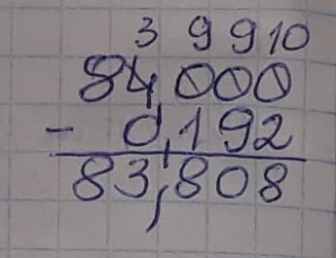 3 9 9 10
84,000
- 0,192
83,808